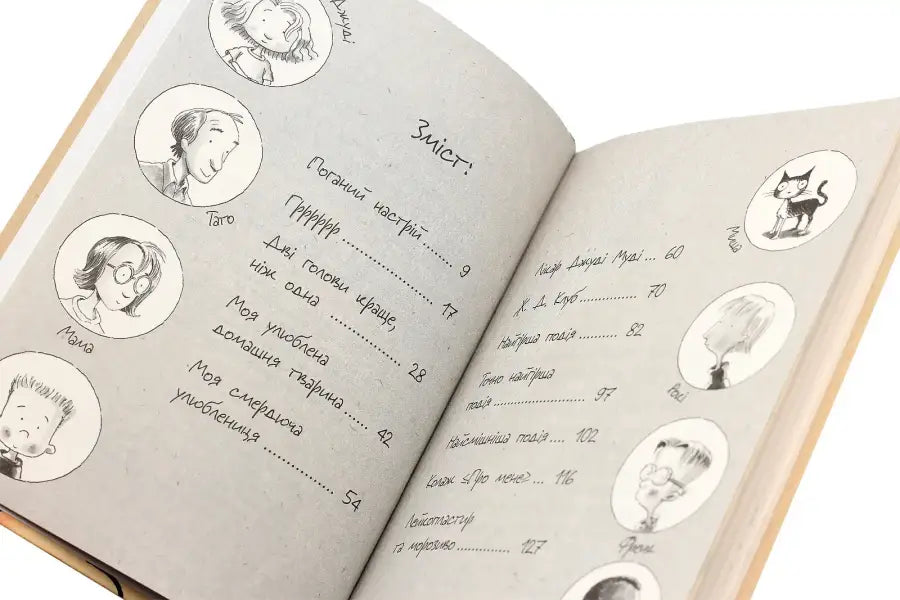 Джуді
Тато
Мама
Зміст:
Поганий настрій....... 9
Грррррр ................ 17
Дві голови краще,
ніж одна ............... 28
Моя улюблена
домашня тварина.... 42
Моя смердюча
улюблениця ............. 54
Лікар Джуді Муді ... 60
Х. Д. Клуб ............... 70
Найгірша подія ........ 82
Точно найгірша
подія ........................ 97
Найсмішніша подія .... 102
Колаж «Про мене» ... 116
Лейкопластир
та морозиво ............. 127
Миша
Рокі
Френк